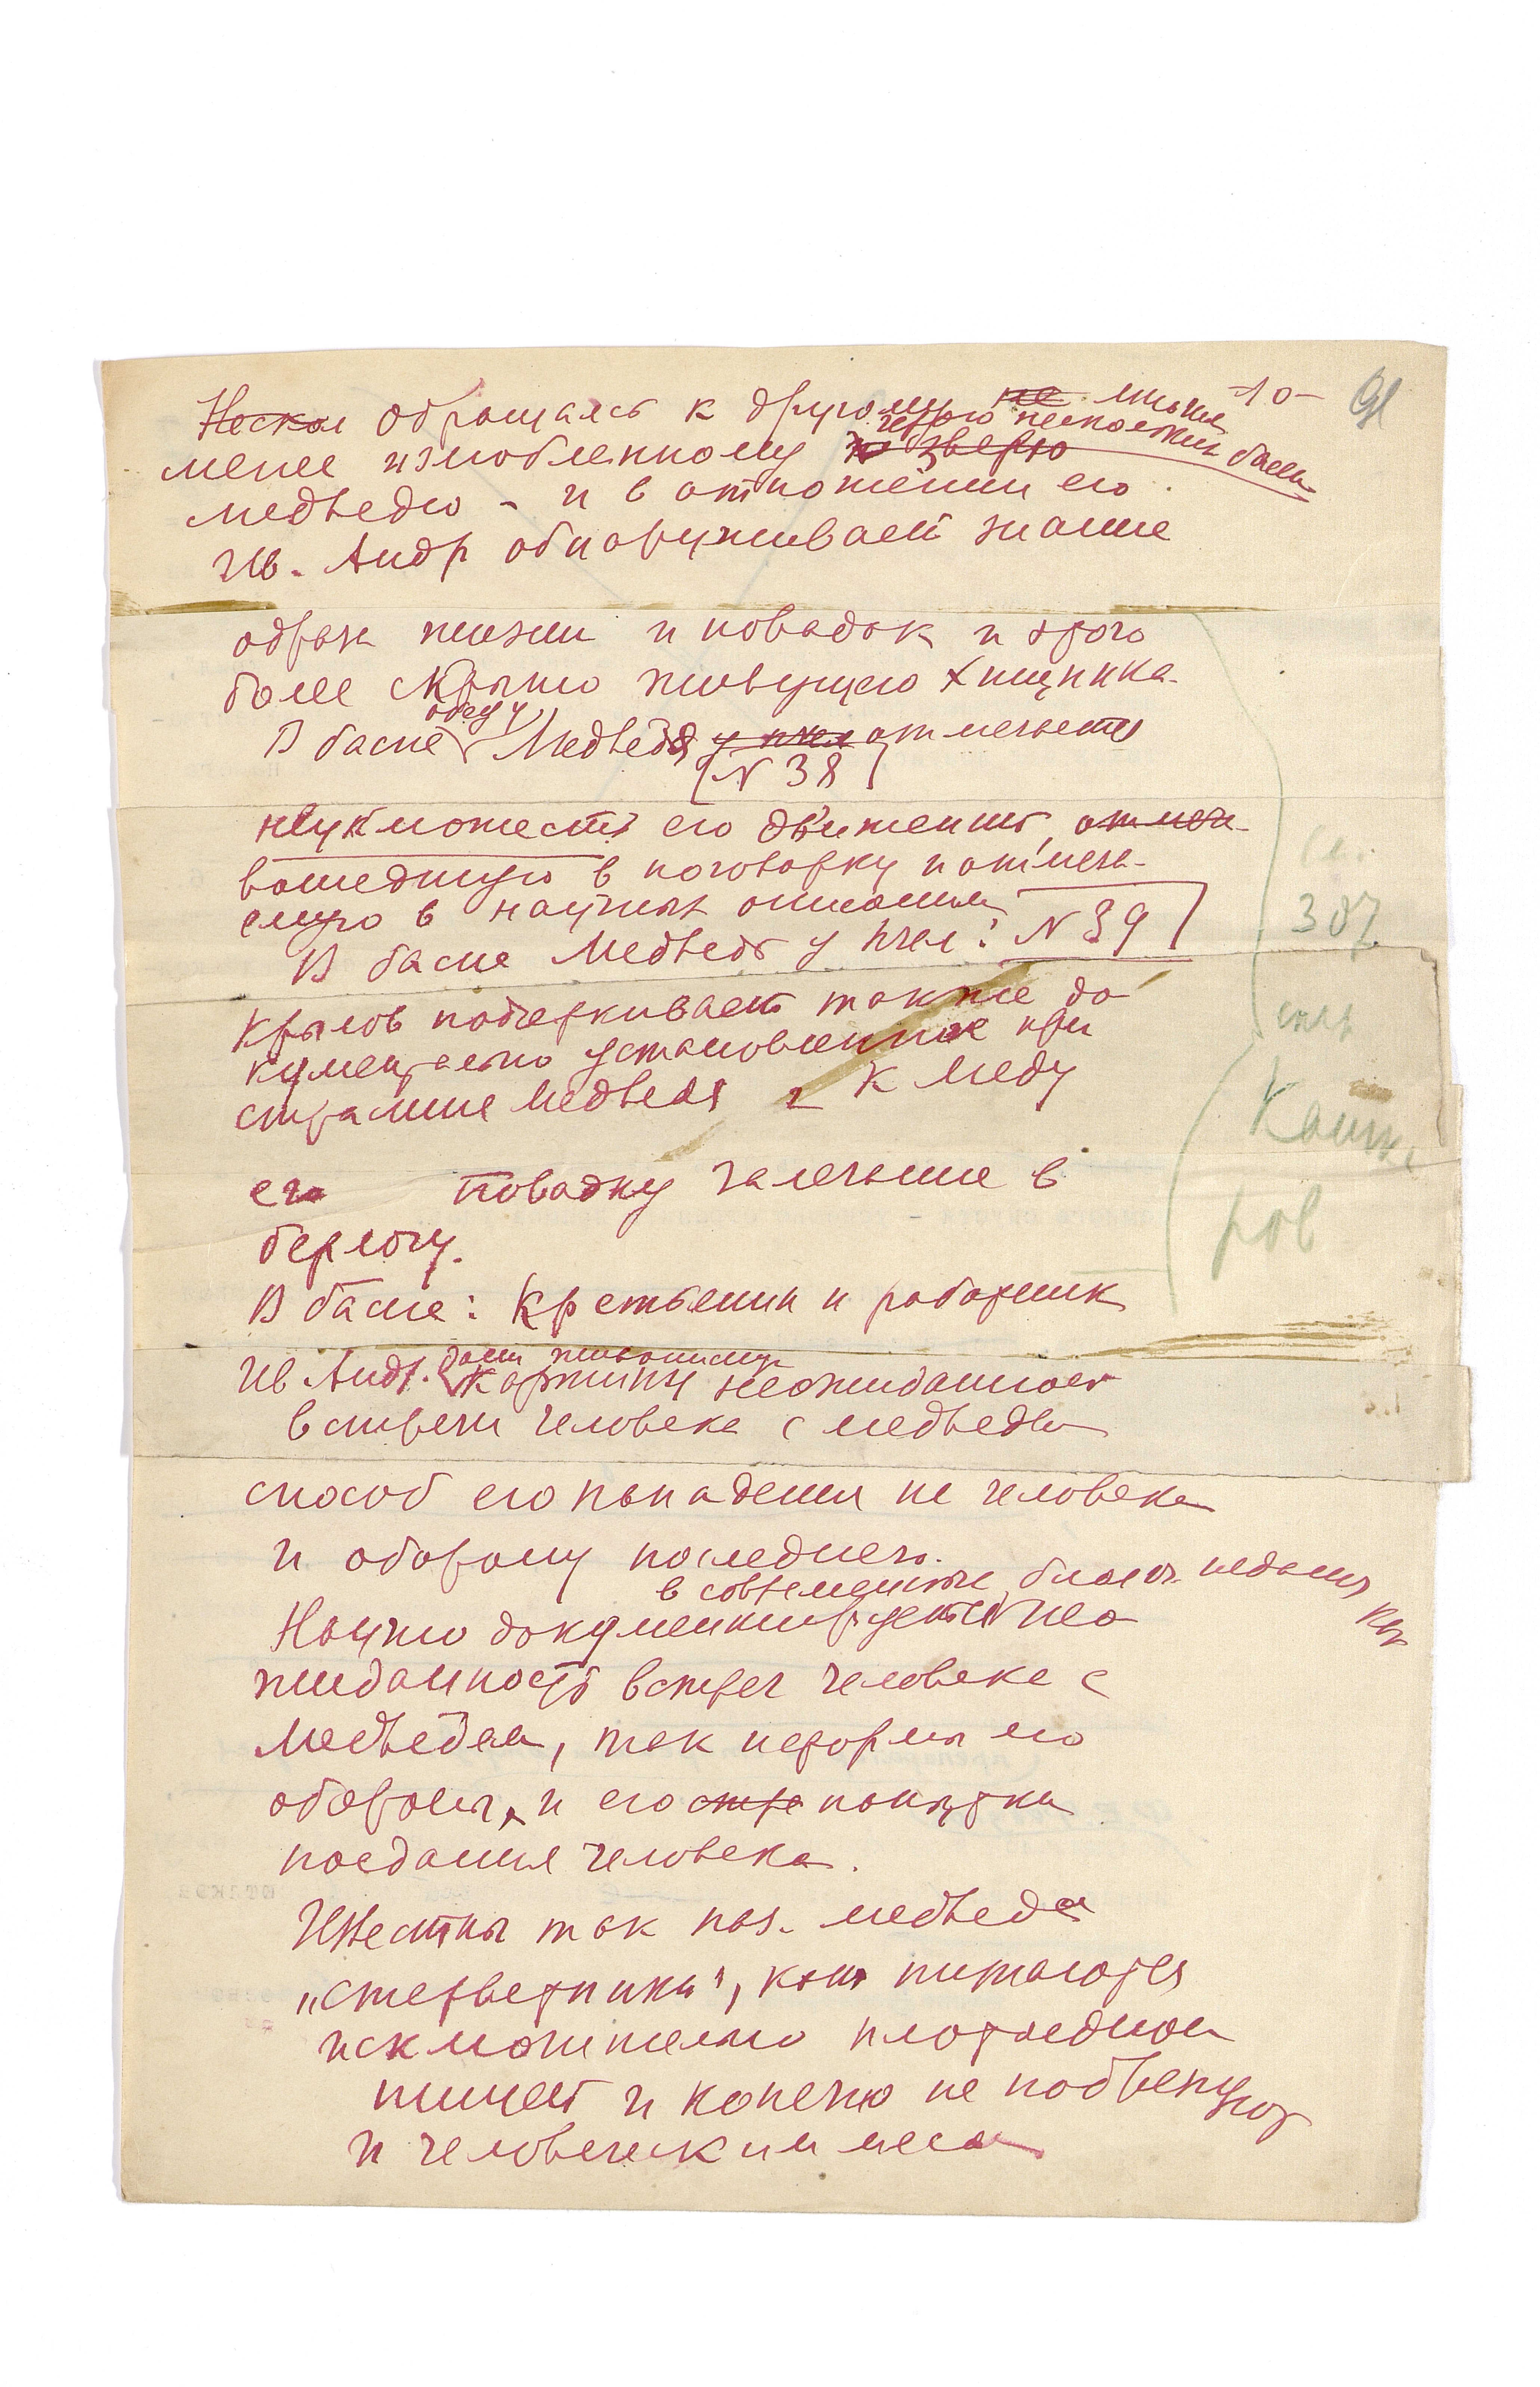 -10-
91
Нескол Обращаясь к другому не лишь
менее излюбленному герою нескольких басен зверю
медведю - и в отношении его
Ив. Андр обнаруживает знание
образа жизни и повадок и этого
более скрытно живущего хищника.
В басне обед у Медведя у пчел отмечается
[N 38]
неуклюжесть его движений, отмеч
вошедшую в поговорку и отмеча-
емую в научных описаниях
В басне Медведь у Пчел: N 39
Крылов подчеркивает также до
кументально установленное при
страстие медведя к меду
его повадку залегания в
берлогу.
В басне: Крестьянин и работник
Ив. Андр. дает живописную картину неожиданной
встречи человека с медведем
способ его нападения на человека
и оборону последнего.
в современных
Научно документируется нео
жиданность встреч человека с
медведем, так и формы его
обороны, и его стре попытки
поедания человека.
Известны так наз. медведи
„стервятники", кот питаются
исключительно плотоядной
пищей и конечно не
и человеческим мясом
см.
307
стр